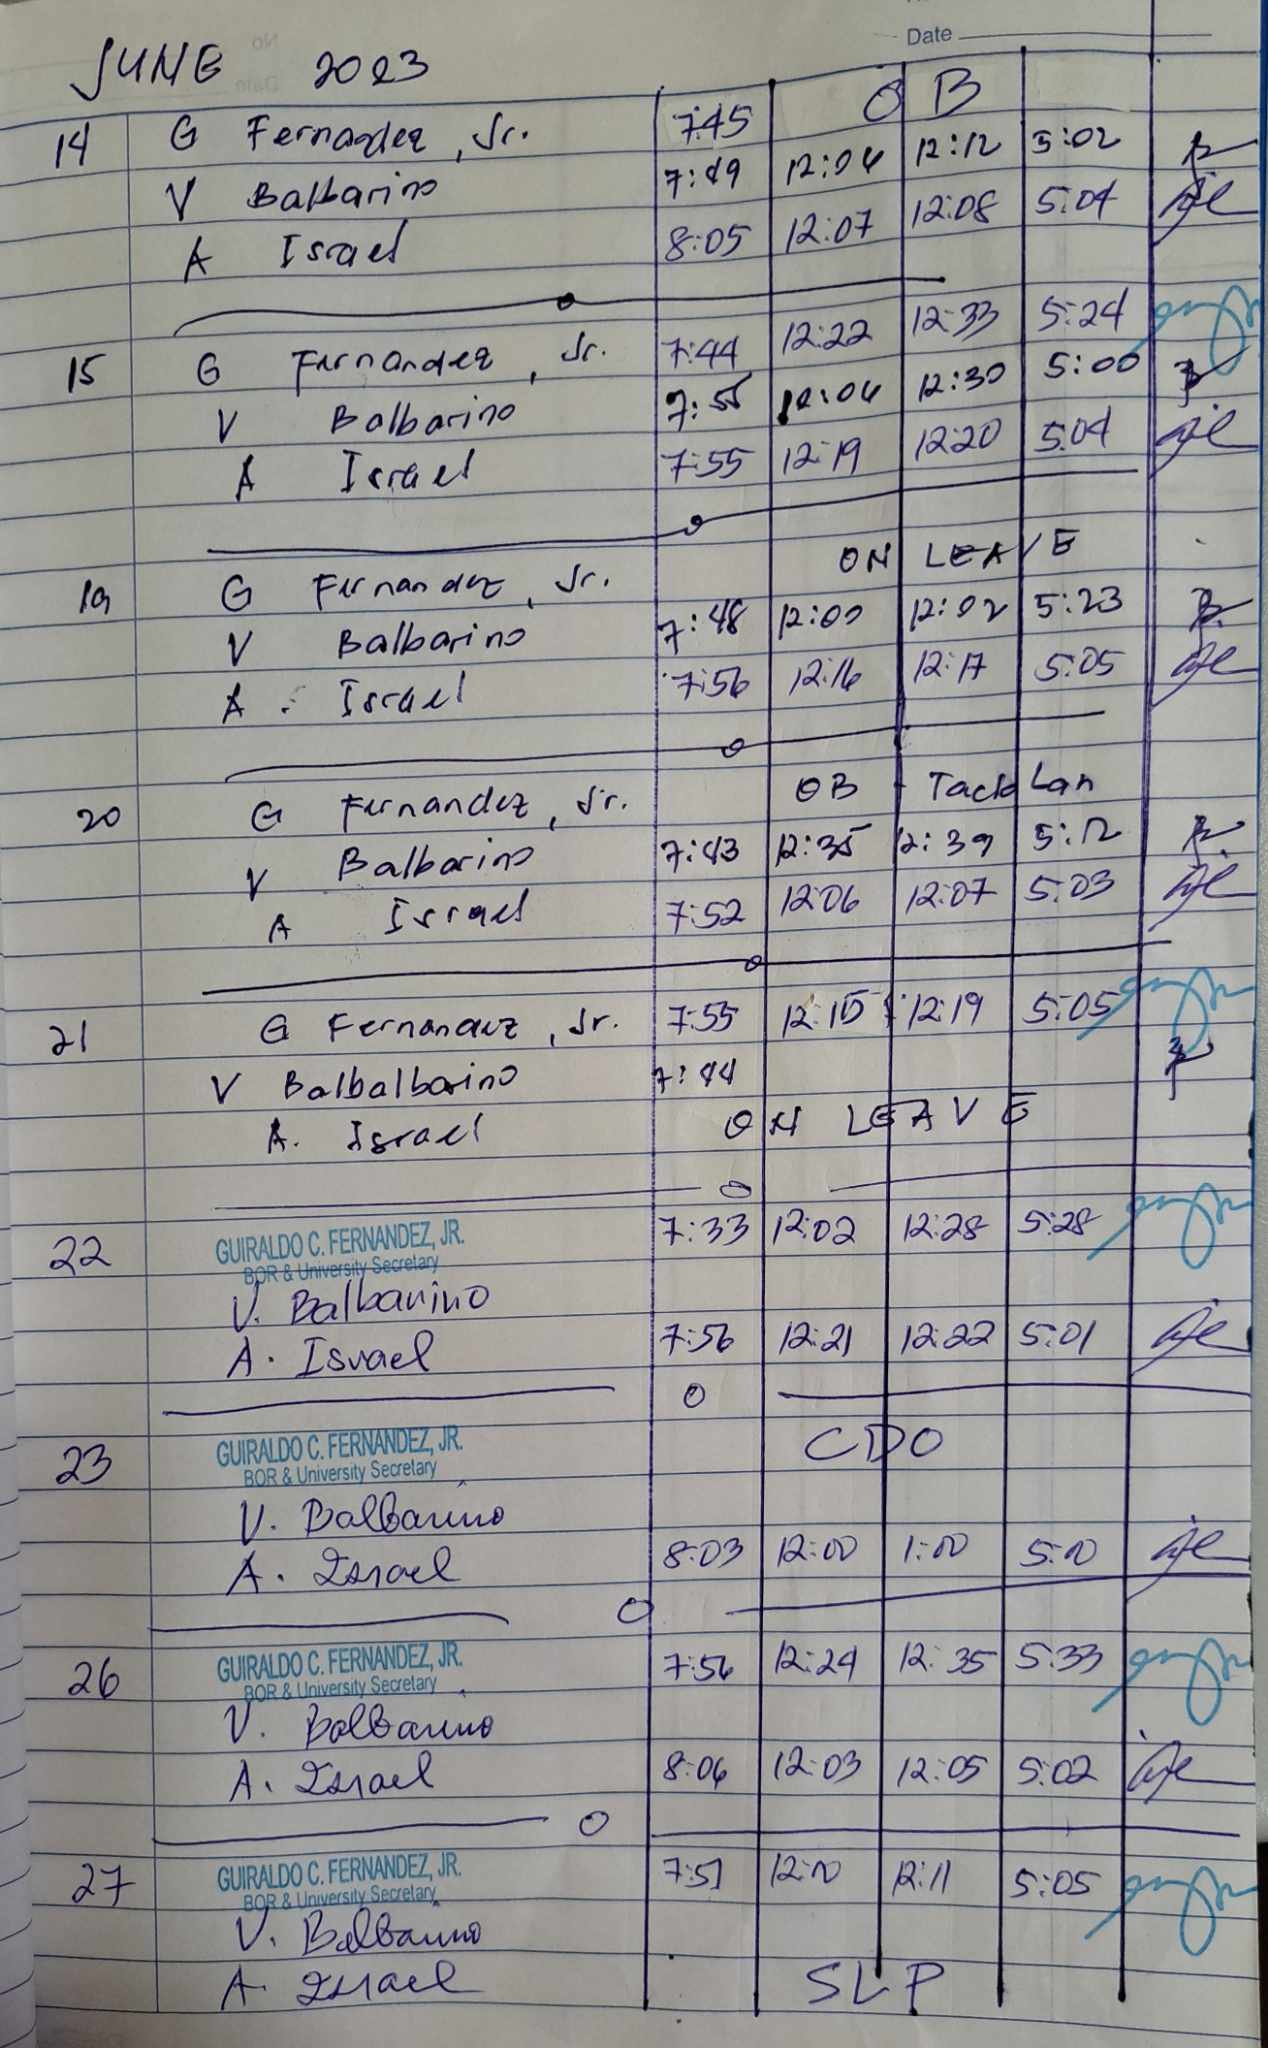 Date
JUNE 2023
14 G Fernandez, Jr. 7:45 OB
V Balbarino 7:49 12:04 12:12 5:02
A Israel 8:05 12:07 12:08 5:04
15 G Fernandez, Jr. 7:44 12:22 12:33 5:24
V Balbarino 7:55 12:04 12:30 5:00
A Israel 7:55 12:19 12:20 5:04
19 G Fernandez, Jr. ON LEAVE
V Balbarino 7:48 12:00 12:02 5:23
A. Israel 7:56 12:16 12:17 5:05
20 G Fernandez, Jr. OB - Tack Lan
V Balbarino 7:43 12:35 12:39 5:12
A Israel 7:52 12:06 12:07 5:03
21 G Fernandez, Jr. 7:55 12:15 12:19 5:05
V Balbalbarino 7:44
A. Israel ON LEAVE
22 GUIRALDO C. FERNANDEZ, JR. 7:33 12:02 12:28 5:28
BOR & University Secretary
V. Balbarino
A. Israel 7:56 12:21 12:22 5:01
23 GUIRALDO C. FERNANDEZ, JR. CDO
BOR & University Secretary
V. Balbarino
A. Israel 8:03 12:00 1:00 5:00
26 GUIRALDO C. FERNANDEZ, JR. 7:56 12:24 12:35 5:33
BOR & University Secretary
V. Balbarino
A. Israel 8:06 12:03 12:05 5:02
27 GUIRALDO C. FERNANDEZ, JR. 7:51 12:10 12:11 5:05
BOR & University Secretary
V. Balbarino
A. Israel SLP